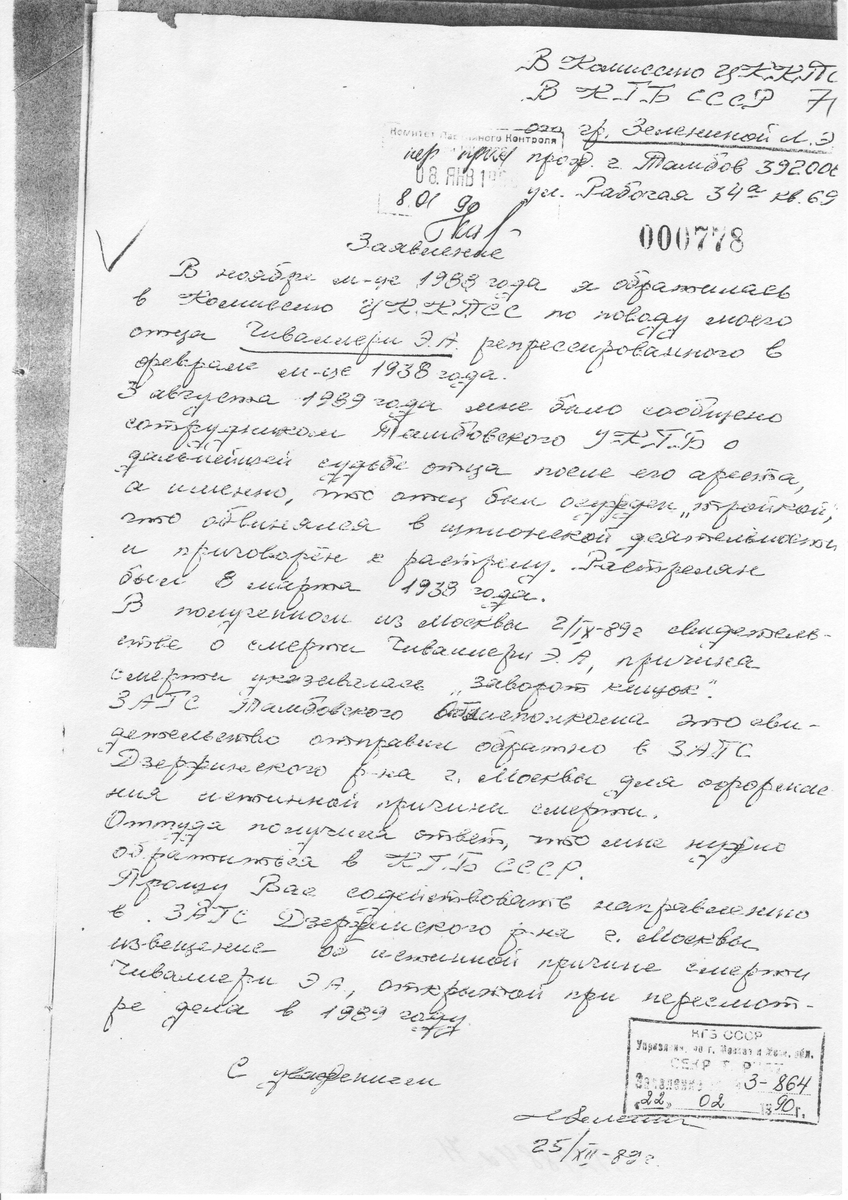 В Комиссию ЦК КПС
В КГБ СССР
гр. Зелениной Л. Э
Комитет Партийного Контроля
прож. г. Тамбов 392000
08 ЯНВ 19
ул. Рабочая 34а кв. 69
8.01 90
000778
Заявление
В ноябре м-це 1988 года я обратилась
в Комиссию Ц.К.КПСС по поводу моего
отца Чиваллери Э.А. репрессированного в
феврале м-це 1938 года.
3 августа 1989 года мне было сообщено
сотрудником Тамбовского УКГБ о
дальнейшей судьбе отца после его ареста,
а именно, что отец был осужден „тройкой",
что обвинялся в шпионской деятельности
и приговорён к растрелу. Растрелян
был 8 марта 1938 года.
В полученном из Москвы 2/IX-89г свидетель-
стве о смерти Чиваллери Э.А, причина
смерти указывалась „заворот кишок".
ЗАГС Тамбовского исполкома это сви-
детельство отправил обратно в ЗАГС
Дзержинского р-на г. Москвы для оформле
ния истинной причины смерти.
Оттуда получила ответ, что мне нужно
обратиться в К.Г.Б СССР.
Прошу Вас содействовать направлению
в ЗАГС Дзержинского р-на г. Москвы
извещение об истинной причине смерти
Чиваллери Э А, открытой при пересмот-
ре дела в 1989 году
С уважением
КГБ СССР
Управление по г. Москве и Моск. обл.
СЕКРЕТАРИАТ
Заявление 3-864
„22" 02 1990 г.
25/XII-89г.